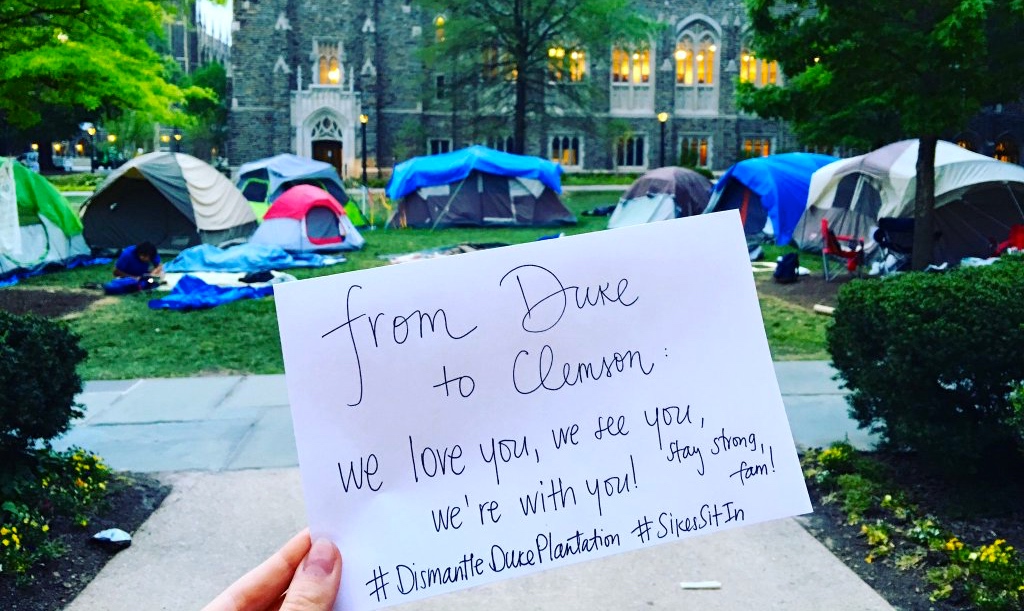 from Duke
to Clemson:
we love you, we see you,
we're with you!
stay strong,
fam!
#DismantleDukePlantation #SikesSitIn